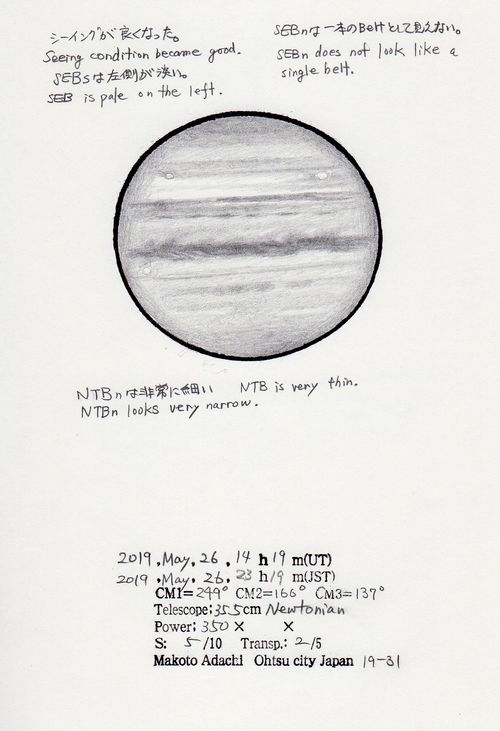 シーイングが良くなった。
Seeing condition became good.
SEBsは左側が淡い。
SEB is pale on the left.
SEBnは一本のBeltとして見えない。
SEBn does not look like a
single belt.
NTBnは非常に細い NTB is very thin.
NTBn looks very narrow.
2019 .May. 26 . 14 h 19 m(UT)
2019 .May. 26. 23 h 19 m(JST)
CM1=249° CM2=166° CM3=137°
Telescope:35.5cm Newtonian
Power: 350 × ×
S: 5/10 Transp.: 2/5
Makoto Adachi Ohtsu city Japan 19-31